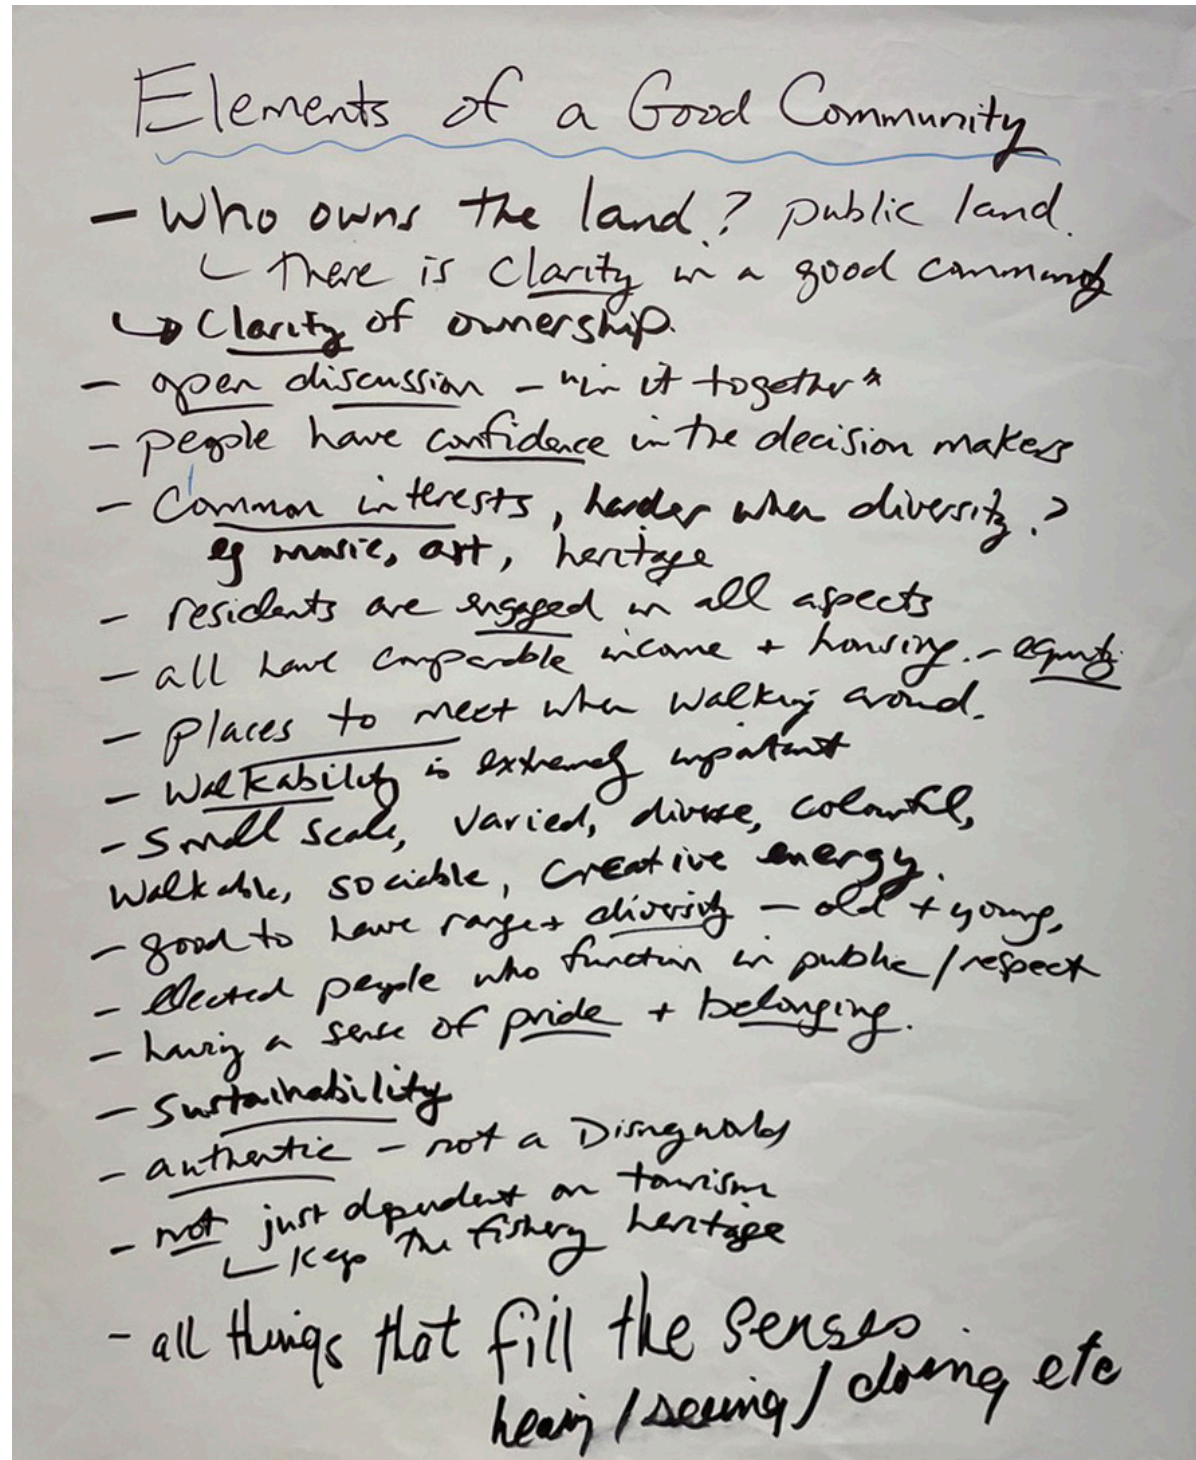 Elements of a Good Community
- Who owns the land? public land.
There is clarity in a good community
Clarity of ownership.
- open discussion - "in it together"
- people have confidence in the decision makers
- Common interests, harder when diversity.?
eg music, art, heritage
- residents are engaged in all aspects
- all have comparable income + housing. - equity
- places to meet when walking around.
- walkability is extremely important
- small scale, varied, diverse, colourful,
walkable, sociable, creative energy.
- good to have range + diversity - old + young,
- elected people who function in public / respect
- having a sense of pride + belonging.
- sustainability
- authentic - not a Disneyworld
- not just dependent on tourism
Keep the fishery heritage
- all things that fill the senses.
hearing / seeing / doing etc